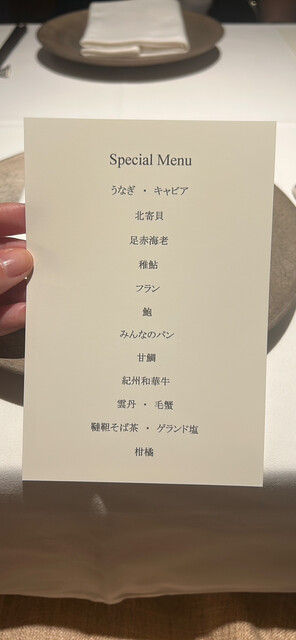 Special Menu
うなぎ ・ キャビア
北寄貝
足赤海老
稚鮎
フラン
鮑
みんなのパン
甘鯛
紀州和華牛
雲丹 ・ 毛蟹
韃靼そば茶 ・ ゲランド塩
柑橘